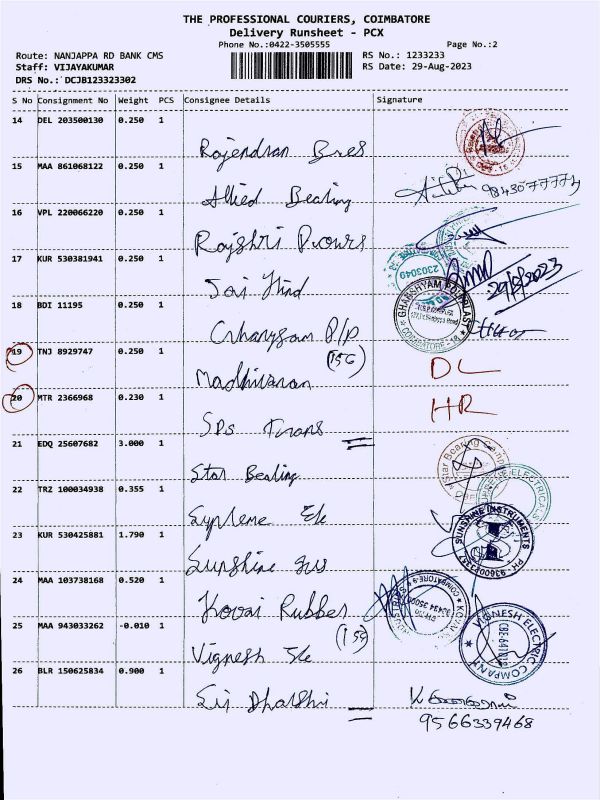 THE PROFESSIONAL COURIERS, COIMBATORE
Delivery Runsheet - PCX
Phone No.:0422-3505555 Page No.:2
Route: NANJAPPA RD BANK CMS RS No.: 1233233
Staff: VIJAYAKUMAR RS Date: 29-Aug-2023
DRS No.: DCJB123323302
S No Consignment No Weight PCS Consignee Details Signature
14 DEL 203500130 0.250 1
Rajendran Bros
15 MAA 861068122 0.250 1
Allied Bearing
16 VPL 220066220 0.250 1
Rajshri
17 KUR 530381941 0.250 1
Jai Hind 29/8/2023
2303049
18 BDI 11195 0.250 1
GHANSHYAM
COIMBATORE - 18
P/P
19 TNJ 8929747 0.250 1
(156) DL
Madhivanan
20 MTR 2366968 0.230 1
HR
SPS Trans
21 EDQ 25607682 3.000 1
Star Bearing Star Bearing
22 TRZ 100034938 0.355 1
Supreme Ele ELECTRICALS
23 KUR 530425881 1.790 1
Sunshine Ins SUNSHINE INSTRUMENTS
24 MAA 103738168 0.520 1
Kovai Rubber COIMBATORE-9
25 MAA 943033262 -0.010 1
(159)
Vignesh Ele VIGNESH ELECTRIC COMPANY
26 BLR 150625834 0.900 1
Sri Dharshni
9566339468